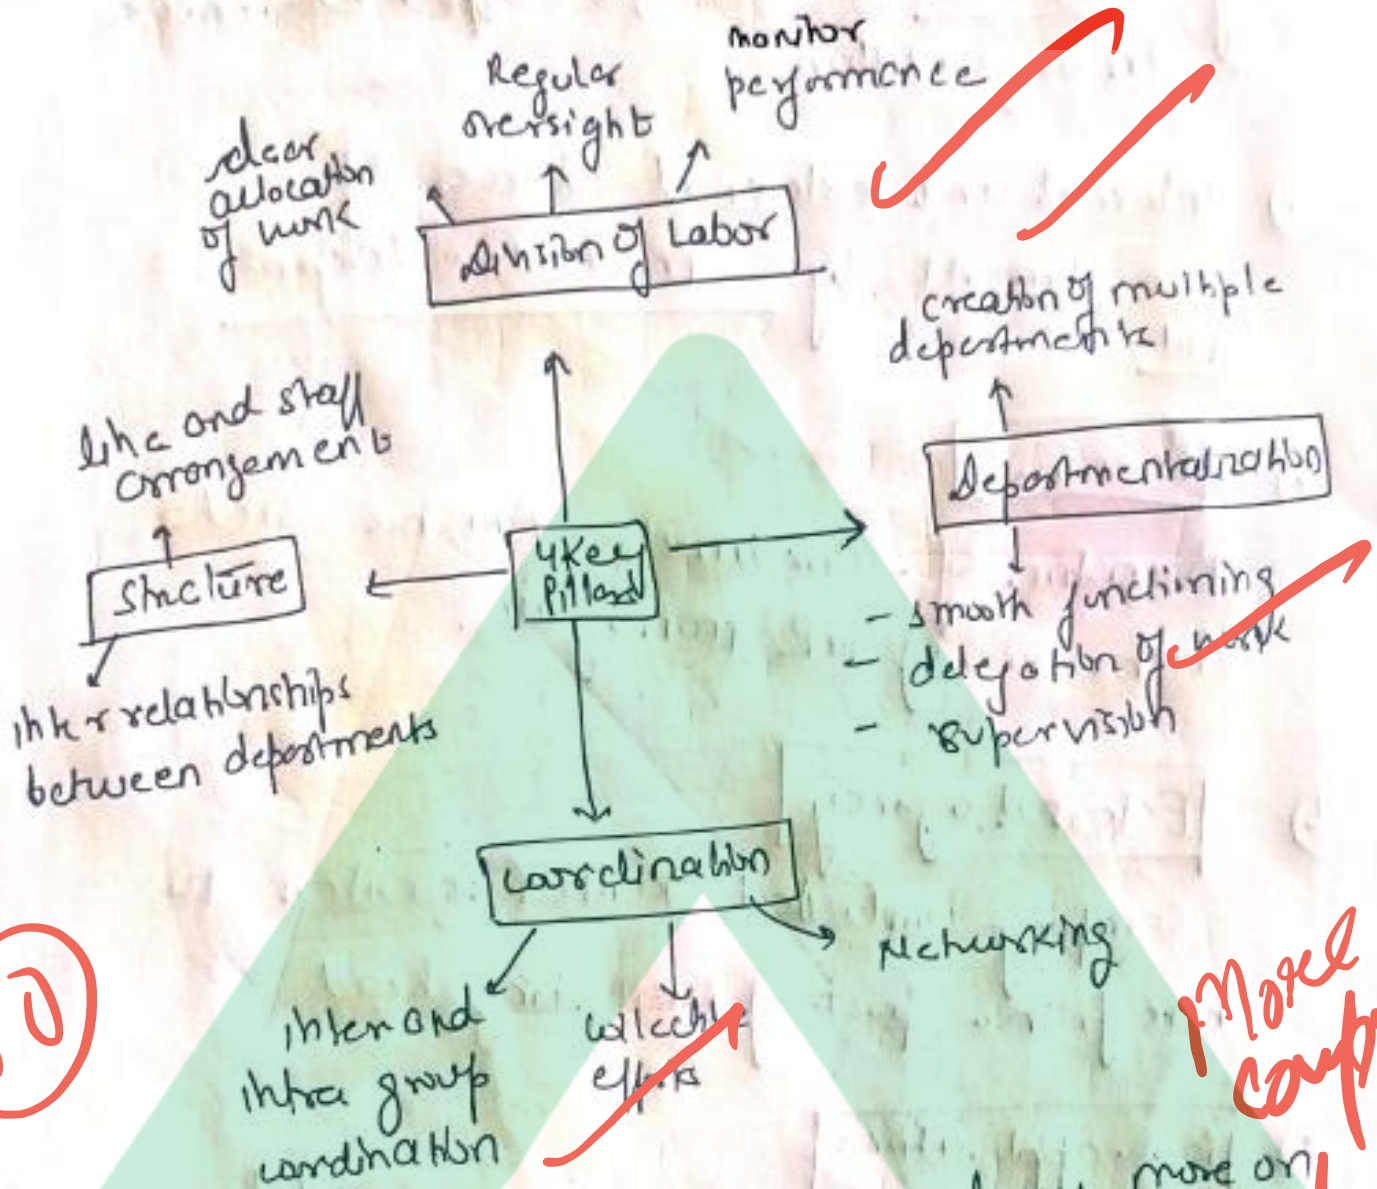 monitor
performance
Regular
oversight
clear
allocation
of work
Division of Labor
creation of multiple
departments
Departmentalization
smooth functioning
- delegation of work
- supervision
line and staff
arrangement
Structure
inter relationships
between departments
4 Key
Pillars
Coordination
Networking
inter and
intra group
coordination
collective
efforts
More
more on